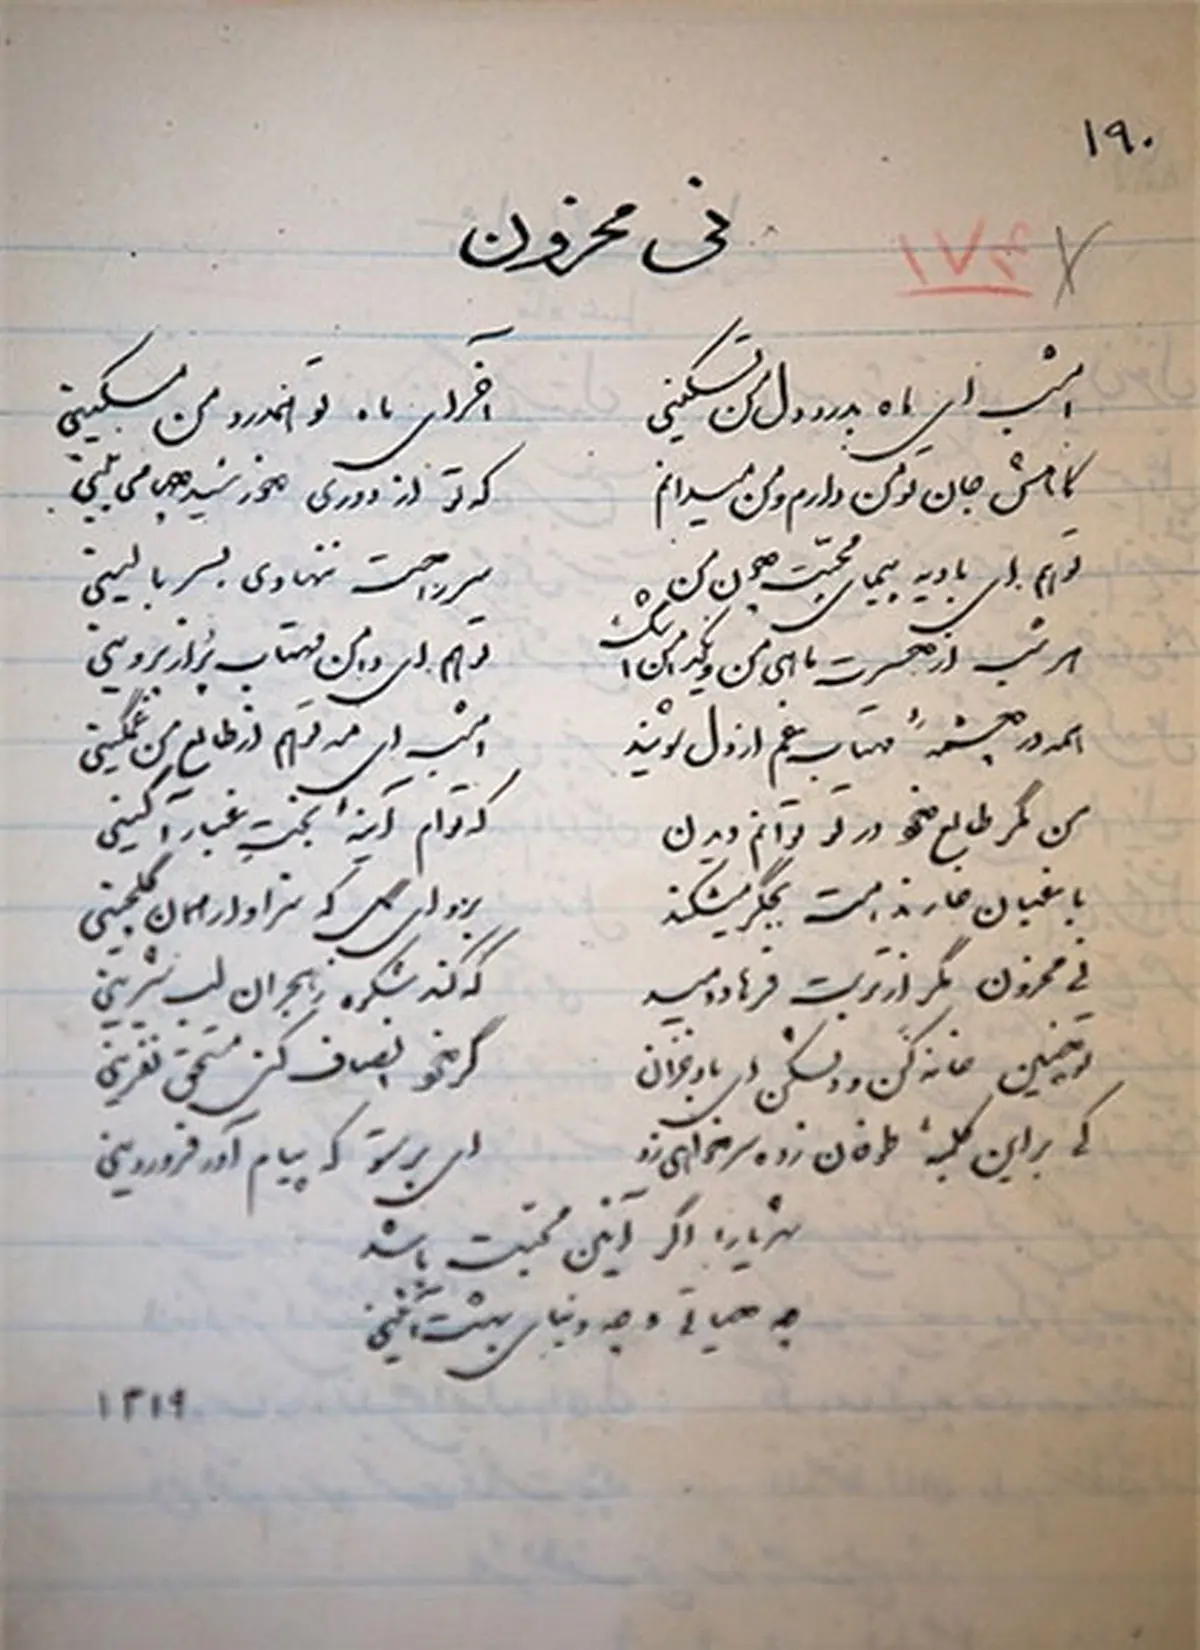 ۱۹۰
نی محزون
امشب ای ماه بدرد دل من تسکینی    آخر ای ماه تو همدرد من مسکینی
کاهش جان تو من دارم و من میدانم    که تو از دوری خورشید چها می بینی
تو هم ای بادیه پیمای محبّت چون من    سر راحت ننهادی بسر بالینی
هر شب از حسرت ماهی من و یکدامن اشک    تو هم ای دامن مهتاب پُر از پروینی
همه در چشمهٔ مهتاب غم از دل شویند    امشب ای مه تو هم از طالع من غمگینی
من مگر طالع خود در تو توانم دیدن    که توام آینهٔ بخت غبار آگینی
باغبان خار ندامت بجگر میشکند    برو ای گل که سزاوار همان گلچینی
نی محزون مگر از تربت فرهاد دمید    که کند شکوه ز هجران لب شیرینی
تو چنین خانه کن و دلشکن ای باد خزان    گر خود انصاف کنی مستحق نفرینی
کی بر این کلبهٔ طوفان زده سر خواهی زد    ای پرستو که پیام آور فروردینی
شهریارا اگر آیین محبّت باشد
چه حیاتی و چه دنیای بهشت آئینی
۱۳۱۹